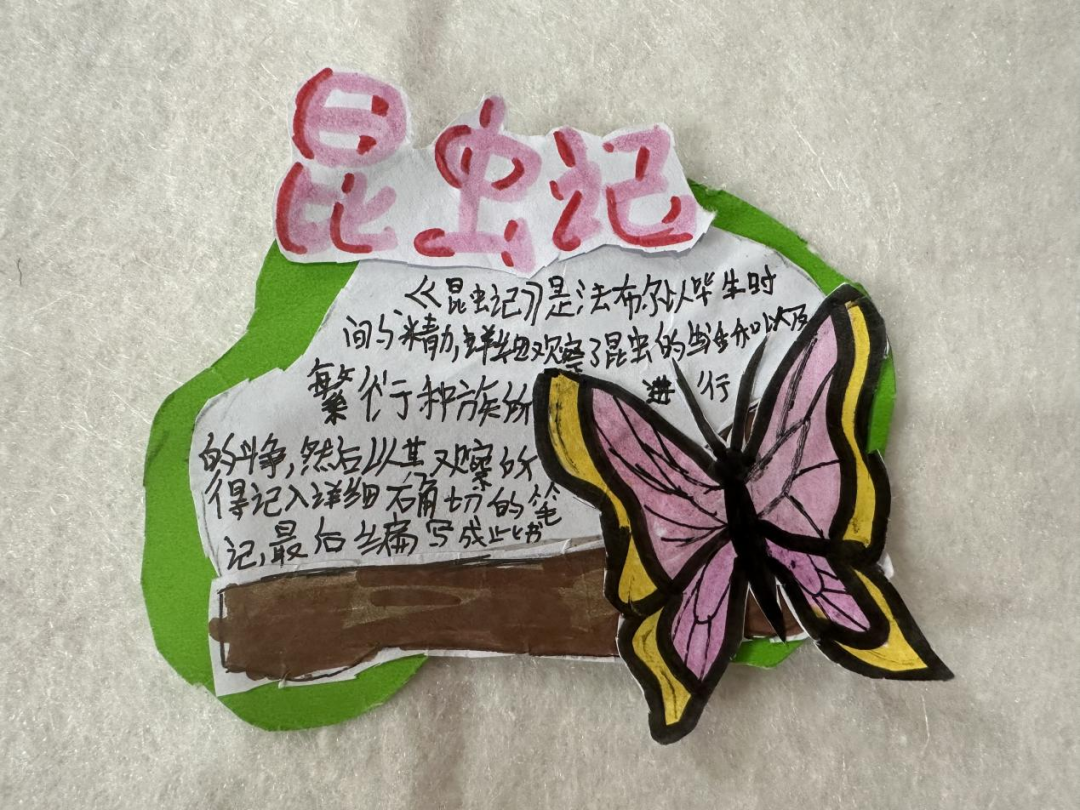 昆虫记
《昆虫记》是法布尔以毕生时
间与精力,详细观察了昆虫的生和以及
繁衍种族所进行
的斗争,然后以其观察所
得记入详细确切的笔
记,最后编写成此书